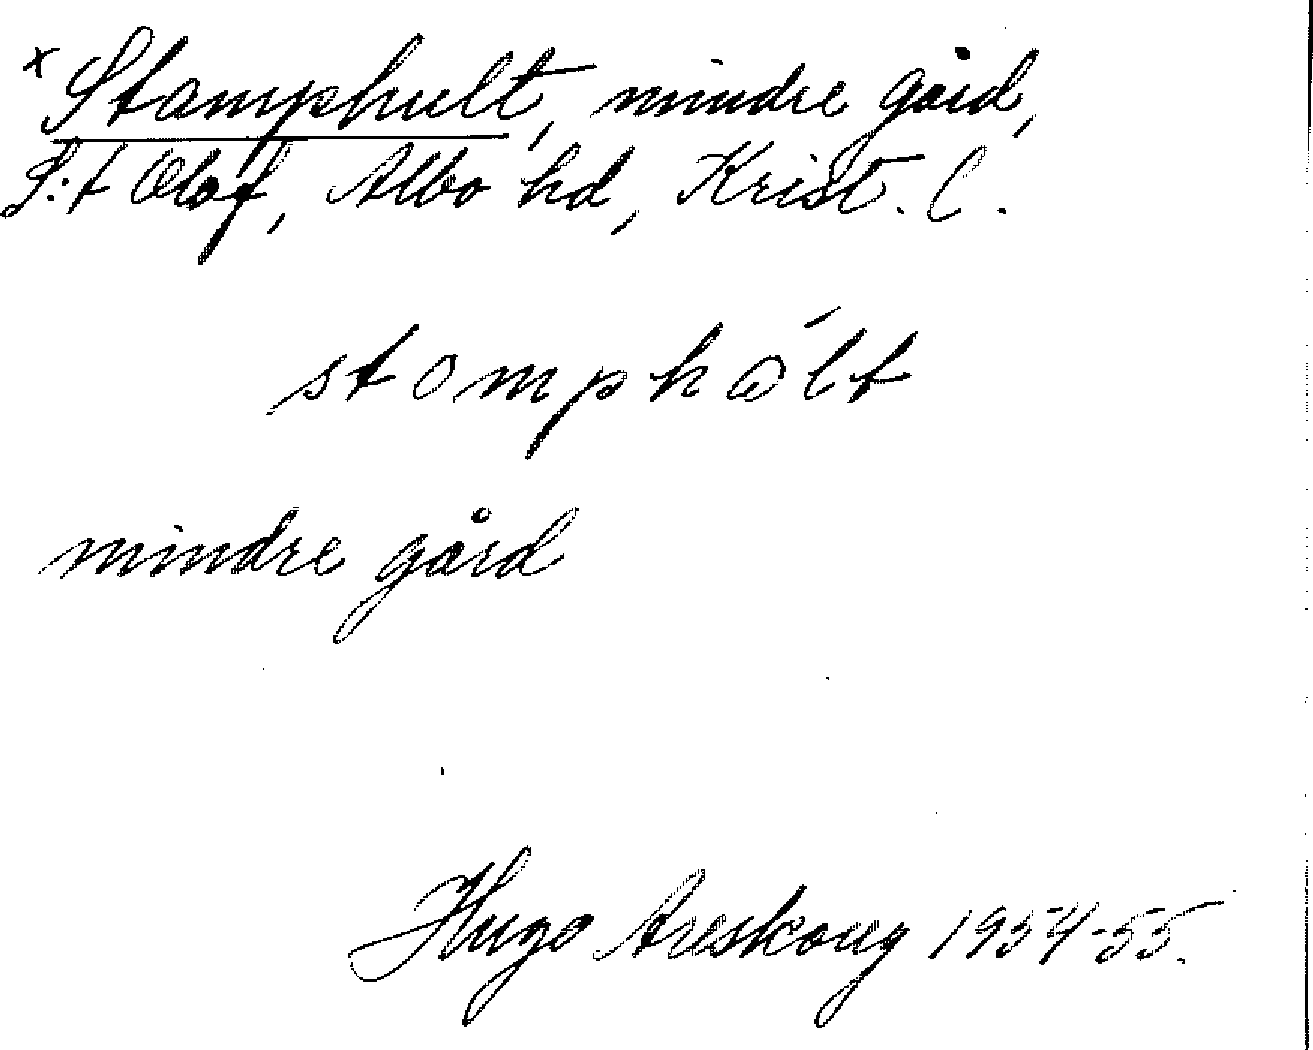 x Stamphult, mindre gård,
S:t Olof, Albo hd, Krist. l.
mindre gård
Hugo Areskoug 1954-55.